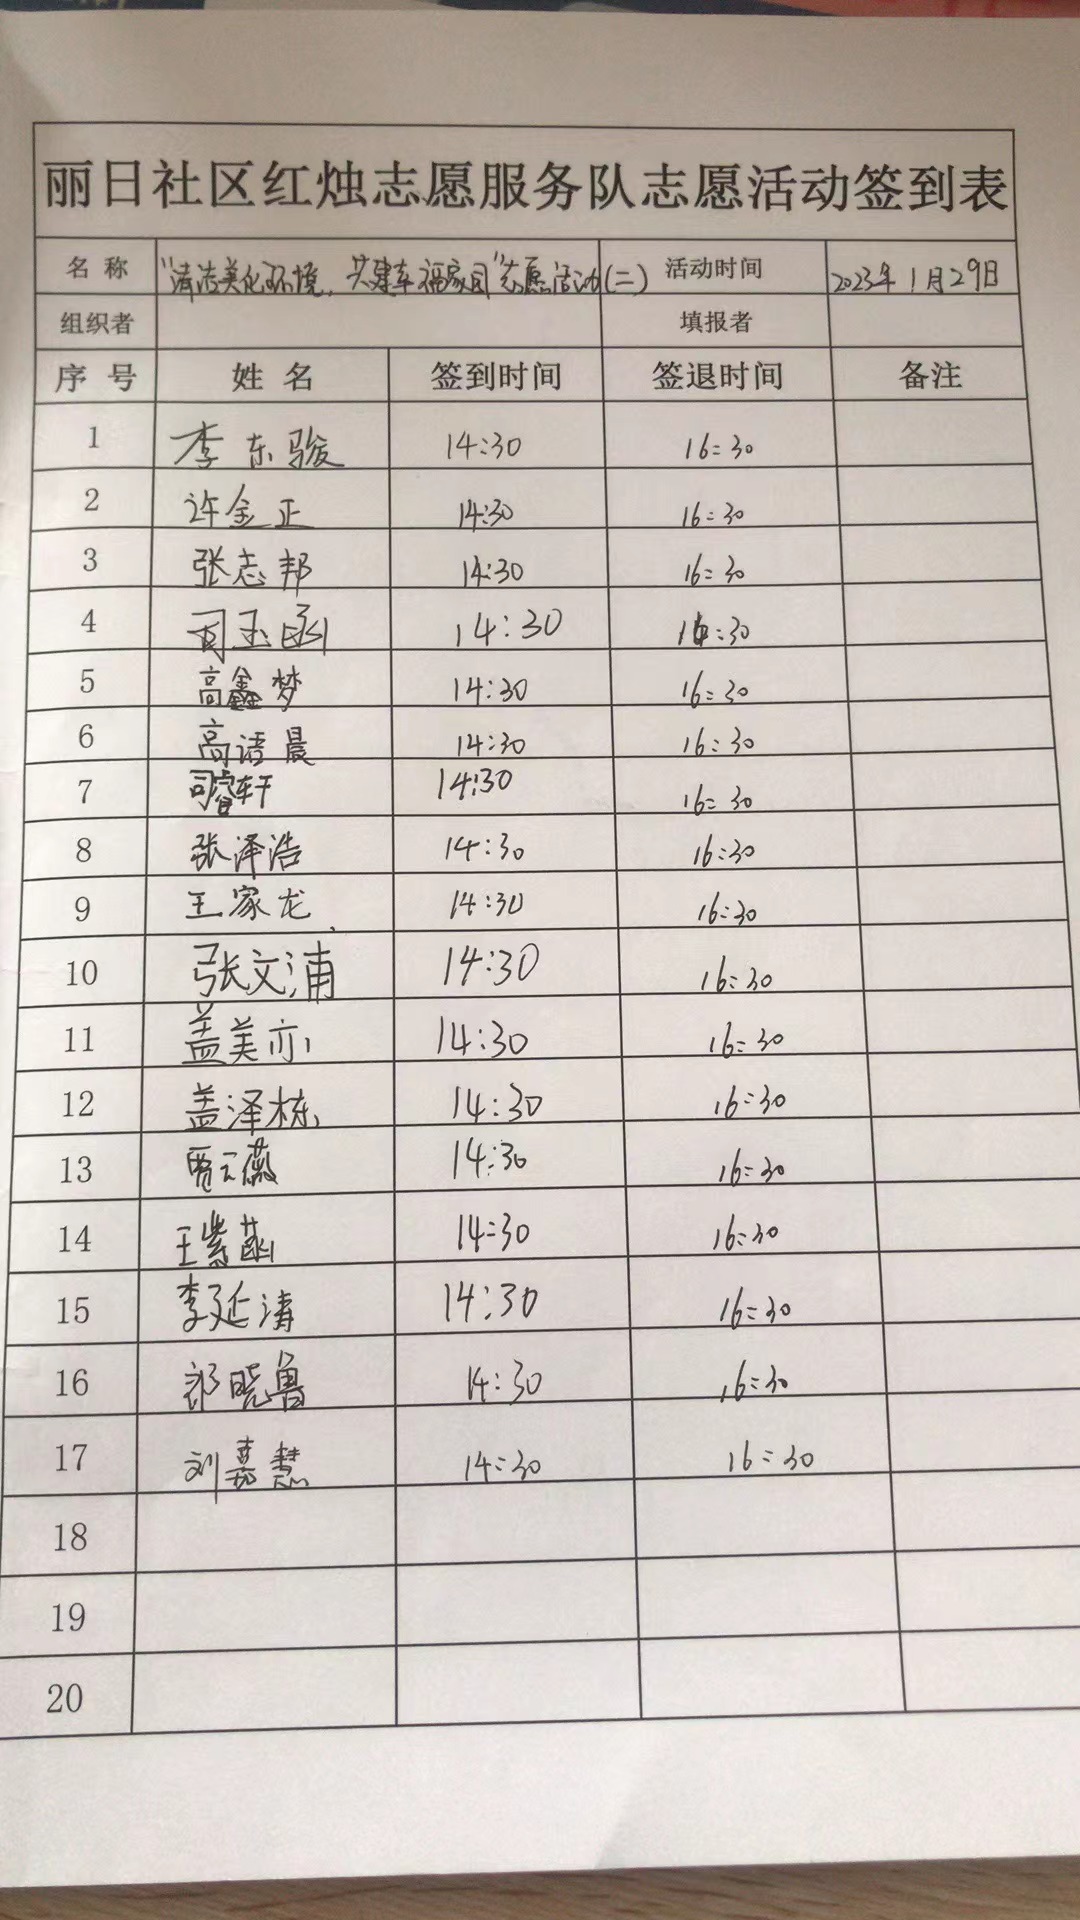 丽日社区红烛志愿服务队志愿活动签到表
名称 "清洁美化环境，共建幸福家园"志愿活动(二) 活动时间 2023年1月29日
组织者 填报者
序号 姓名 签到时间 签退时间 备注
1 李东骏 14:30 16:30
2 许金正 14:30 16:30
3 张志邦 14:30 16:30
4 司玉函 14:30 16:30
5 高鑫梦 14:30 16:30
6 高语晨 14:30 16:30
7 司睿轩 14:30 16:30
8 张泽浩 14:30 16:30
9 王家龙 14:30 16:30
10 张文浦 14:30 16:30
11 盖美亦 14:30 16:30
12 盖泽栋 14:30 16:30
13 贾云薇 14:30 16:30
14 王紫菡 14:30 16:30
15 李延涛 14:30 16:30
16 晓鲁 14:30 16:30
17 刘嘉慧 14:30 16:30
18
19
20